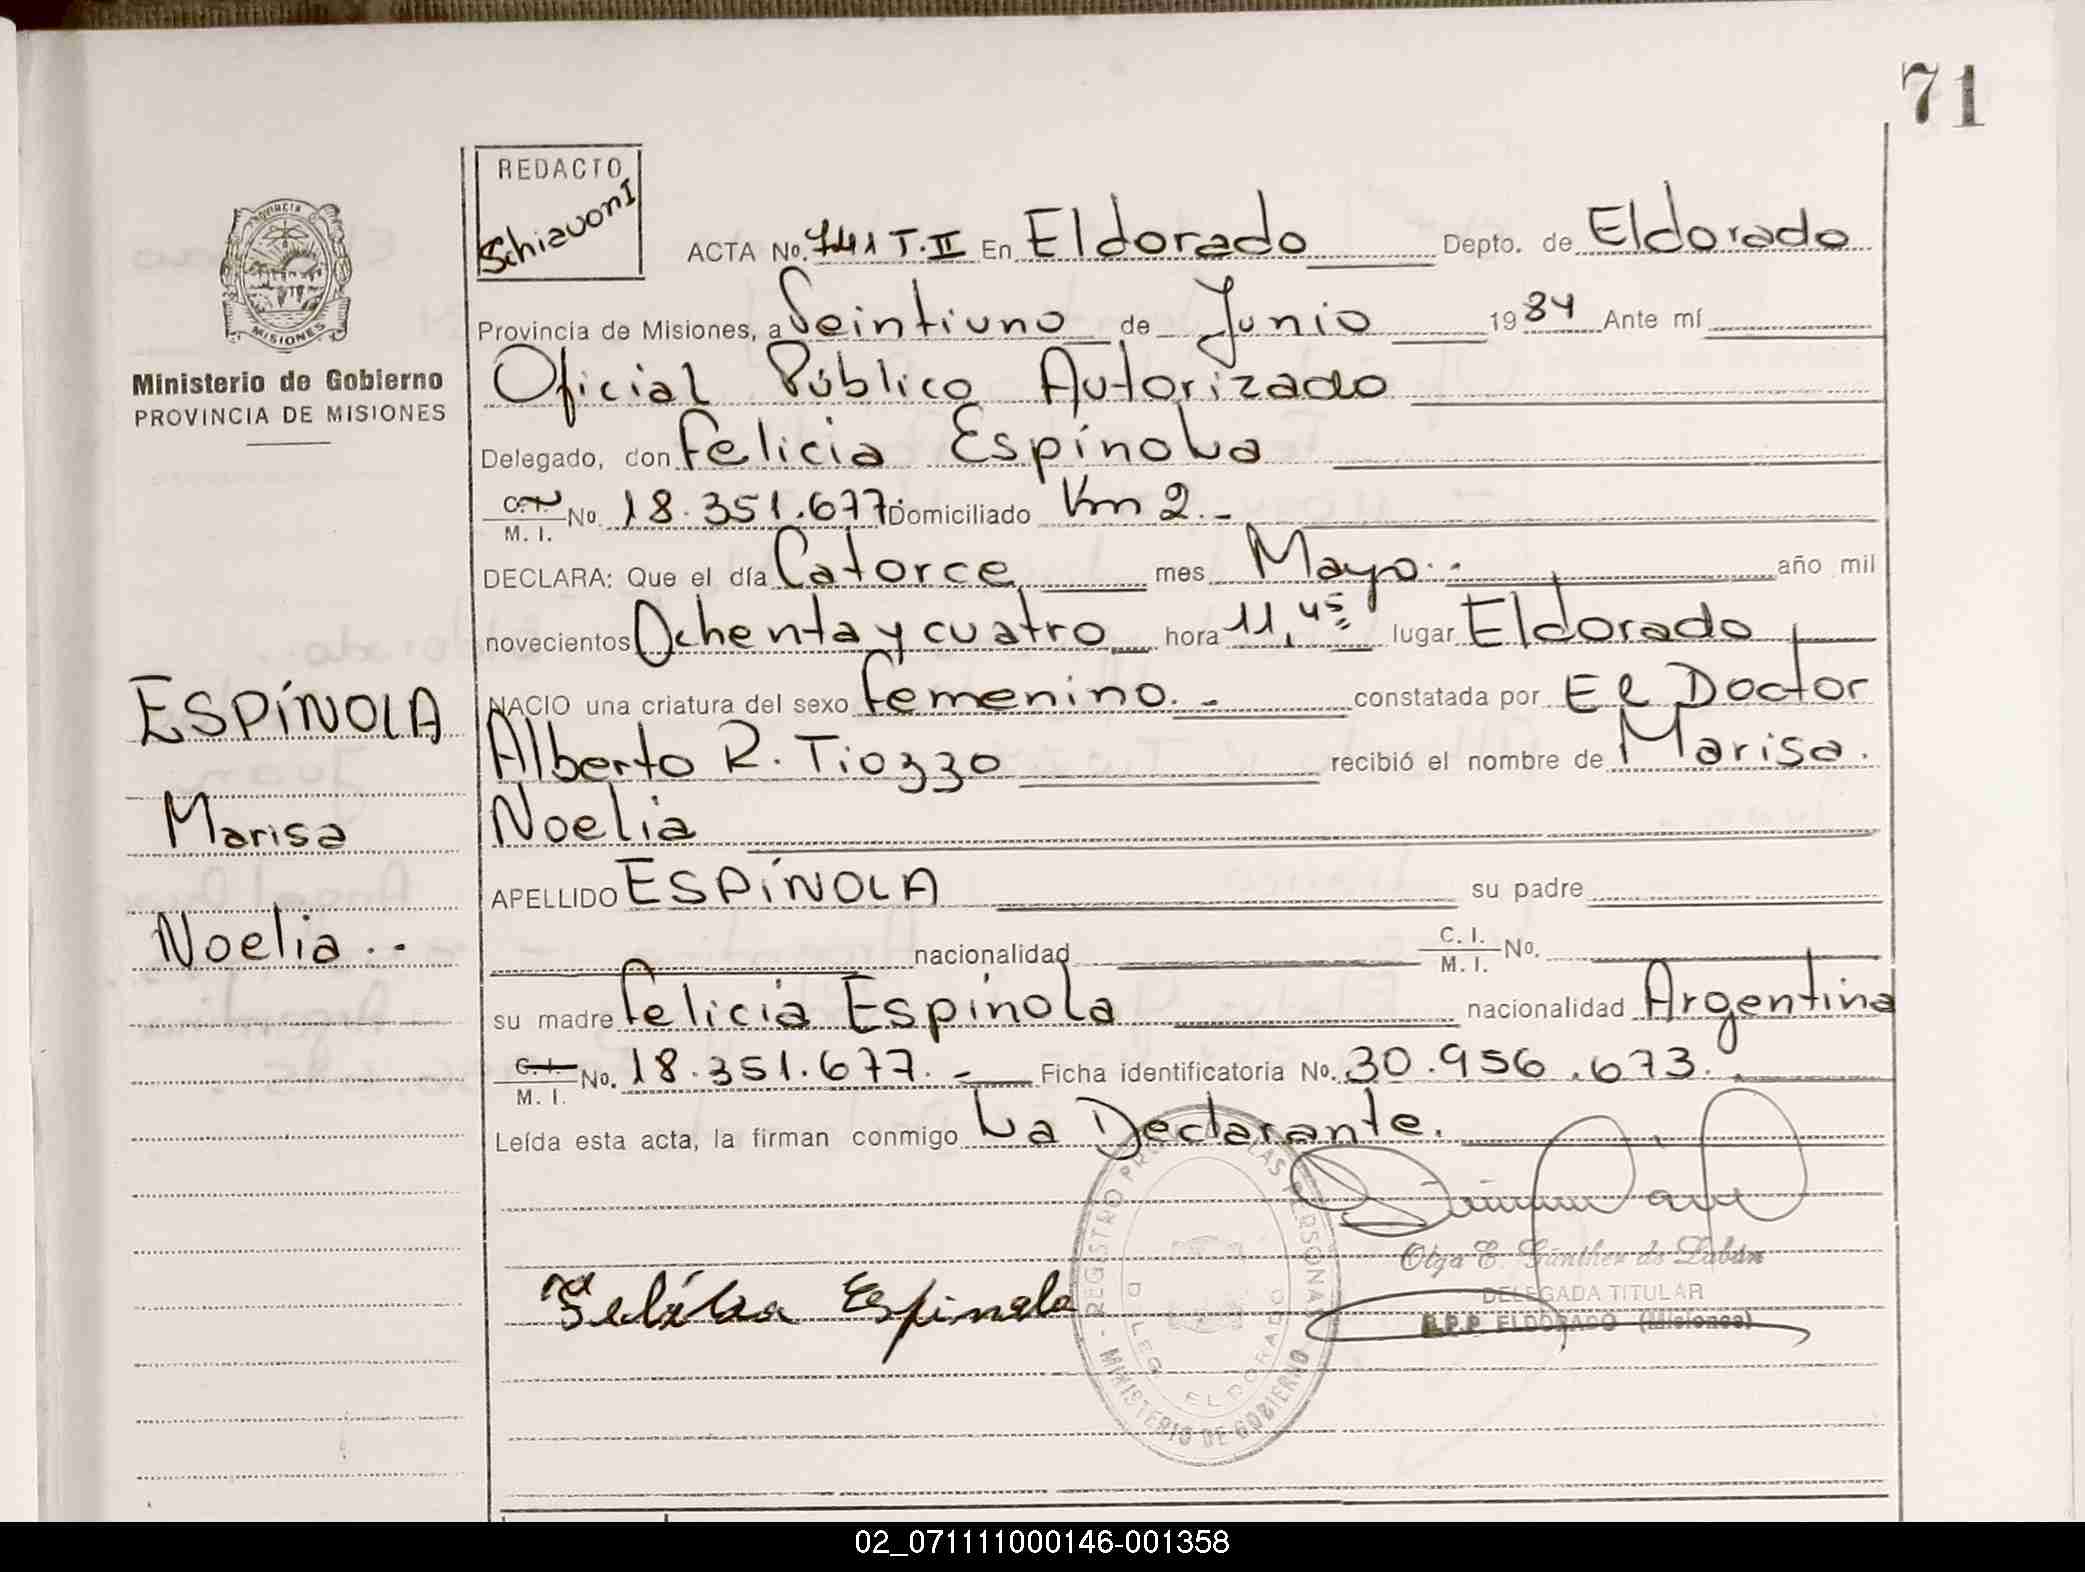 71
REDACTO
Schiavoni
ACTA No. 741 T. II En Eldorado Depto. de Eldorado
Provincia de Misiones, a Veintiuno de Junio 1984 Ante mí
Oficial Público Autorizado
Delegado, don Felicia Espínola
C. I. M. I. No. 18.351.677 Domiciliado Km 2.-
DECLARA: Que el día Catorce mes Mayo.- año mil
novecientos Ochenta y cuatro hora 11,45 lugar Eldorado
NACIO una criatura del sexo femenino.- constatada por El Doctor
Alberto R. Tiozzo recibió el nombre de Marisa.
Noelia
APELLIDO ESPÍNOLA su padre
nacionalidad C. I. M. I. No.
su madre Felicia Espínola nacionalidad Argentina
C. I. M. I. No. 18.351.677.- Ficha identificatoria No. 30.956.673.
Leída esta acta, la firman conmigo La Declarante.
PROVINCIA
MISIONES
Ministerio de Gobierno
PROVINCIA DE MISIONES
ESPÍNOLA
Marisa
Noelia..
Felicia Espinola
REGISTRO PROV. DE LAS PERSONAS - MINISTERIO DE GOBIERNO
DELEG. ELDORADO
Olga E. Günther de Labán
DELEGADA TITULAR
R.P.P. ELDORADO (Misiones)
02_071111000146-001358